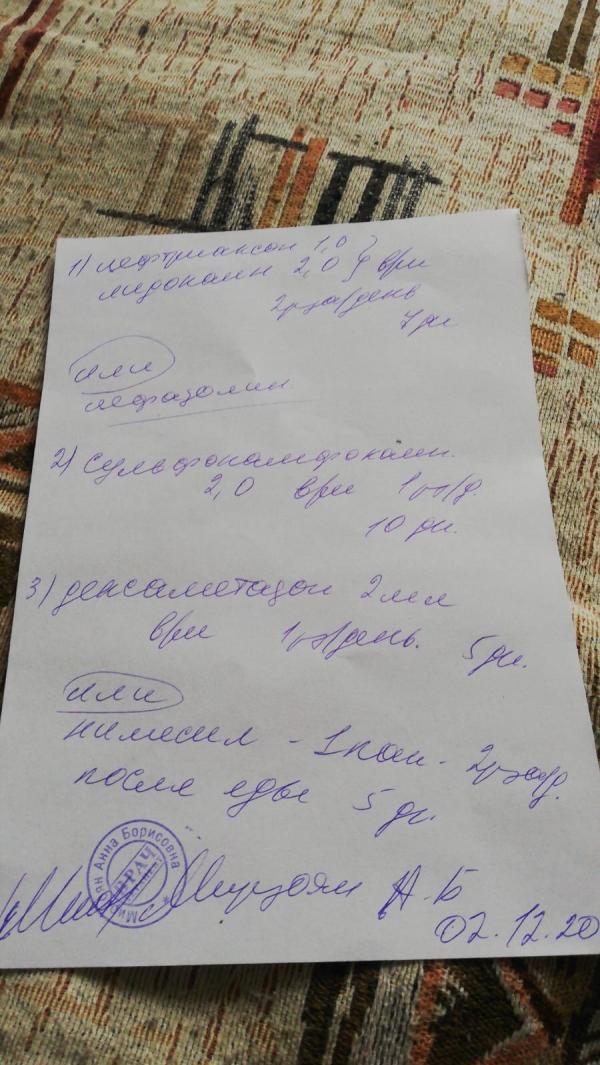 1) цефтриаксон 1,0
лидокаин 2,0 } в/м
2 раза/день
7 дн
или
цефазолин
2) Сульфокамфокаин.
2,0 в/м 1 р/д.
10 дн.
3) дексаметазон 2 мл
в/м 1 р/день. 5 дн.
или
нимесил - 1 пак - 2 раза/д.
после еды 5 дн.
Мирзоян А.Б
02.12.20
Мирзоян Анна Борисовна
ВРАЧ